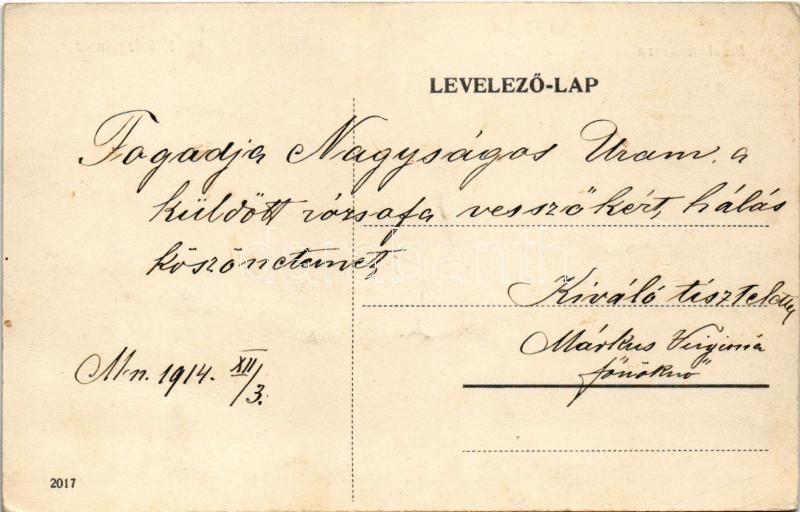 LEVELEZŐ-LAP
Fogadja Nagyságos Uram a
küldött rózsafa vesszőkért, hálás
köszönetemet,
Kiváló tisztelettel
Márkus Virginia
főnöknő
M-n. 1914. XII/3.
2017